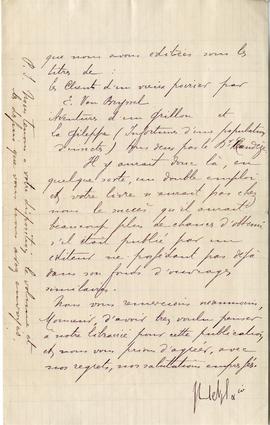 que nous avons éditées sous les
titres de :
Les Clients d'un vieux poirier par
E. Van Bruyssel
Aventures d'un Grillon et
la Gileppe (Infortunes d'une population
d'insectes) tous deux par le Dr Candèze
Il y aurait donc là, en
quelque sorte, un double emploi
et votre livre n'aurait pas chez
nous le succès qu'il aurait
beaucoup plus de chances d'obtenir
s'il était publié par un
éditeur ne possédant pas déjà
dans son fonds d'ouvrages
similaires.
Nous vous remercions néanmoins,
Monsieur, d'avoir bien voulu penser
à notre librairie pour cette publication
et nous vous prions d'agréer, avec
nos regrets, nos salutations empressées
P.S. Nous tenons à votre disposition le volume et
les que vous nous avez envoyés